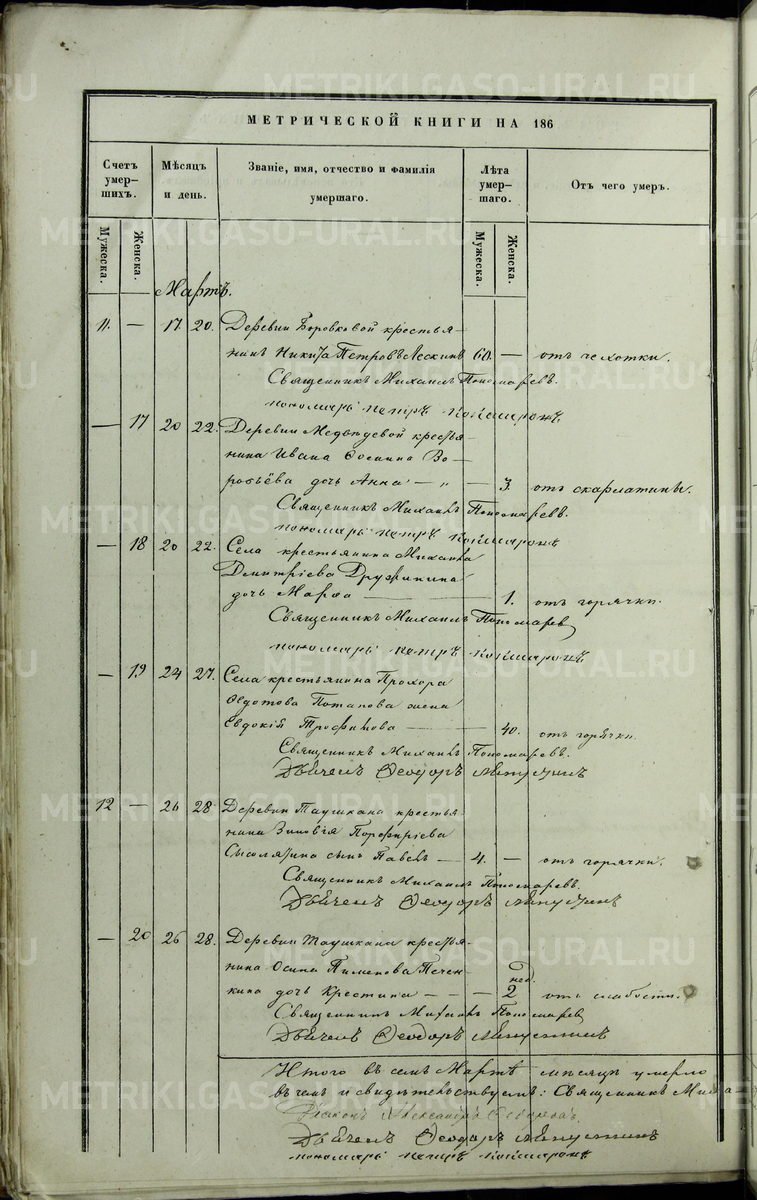 METRIKI.GASO-URAL.RU
МЕТРИЧЕСКОЙ КНИГИ НА 186
Счетъ умер-шихъ. Мѣсяцъ и день. Званіе, имя, отчество и фамилія умершаго. Лѣта умер-шаго. Отъ чего умеръ.
Мужеска. Женска. Мужеска. Женска.
Мартъ.
11. — 17 20. Деревни Боровковой крестья-
нинъ Никита Петровъ Лескинъ 60. — отъ чехотки.
Священникъ Михаилъ Пономаревъ.
пономарь петръ
— 17 20 22. Деревни Медвѣдевой кресть-
янина Ивана Во-
робьёва дочь Анна — „ — — 3. отъ скарлатины.
Священникъ Михаилъ Пономаревъ.
пономарь петръ
— 18 20 22. Села крестьянина Михаила
Дмитріева Дружинина
дочь Марѳа — 1. отъ горячки.
Священникъ Михаилъ Пономарев
пономарь петръ
— 19 24 27. Села крестьянина Прохора
Ѳедотова Потапова жена
Евдокія Трофимова — — 40. отъ горячки.
Священникъ Михаилъ Пономаревъ.
Дьячекъ Ѳеодоръ
12 — 26 28 Деревни Таушкана крестья-
нина Зиновія Порфиріева
Сысолятина сынъ Павелъ — 4. — отъ горячки.
Священникъ Михаилъ Пономаревъ.
Дьячекъ Ѳеодоръ
— 20 26 28. Деревни Таушкана кресть-
янина Осипа Пименова Печен-
кина дочь Крестина — — — 2 нед. отъ слабости.
Священникъ Михаилъ Пономарев
Дьячекъ Ѳеодоръ
Итого въ семъ Мартѣ мѣсяцѣ умерло
въ чемъ и свидѣтельствуемъ: Священникъ Миха-
Діаконъ Александръ
Дьячекъ Ѳеодоръ
пономарь петръ